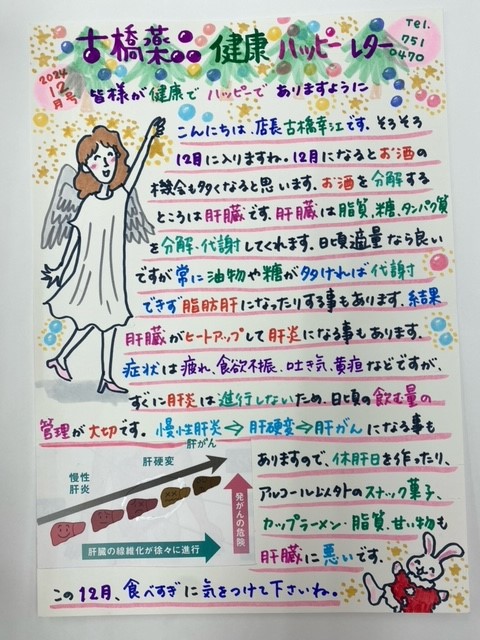 古橋薬品 健康 ハッピー レター
Tel.
751
0470
2024
12
月号
皆様が健康で ハッピーで ありますように
こんにちは、店長古橋幸江です。そろそろ
12月に入りますね。12月になるとお酒の
機会も多くなると思います。お酒を分解する
ところは肝臓です。肝臓は脂質、糖、タンパク質
を分解、代謝してくれます。日頃適量なら良い
ですが常に油物や糖が多ければ代謝
できず脂肪肝になったりする事もあります。結果
肝臓がヒートアップして肝炎になる事もあります。
症状は疲れ、食欲不振、吐き気、黄疸などですが、
すぐに肝炎は進行しないため、日頃の飲む量の
管理が大切です。慢性肝炎→肝硬変→肝がんになる事も
ありますので、休肝日を作ったり、
アルコール以外のスナック菓子、
カップラーメン・脂質、甘い物も
肝臓に悪いです。
肝がん
肝硬変
慢性
肝炎
発がんの危険
肝臓の線維化が徐々に進行
この12月、食べすぎに気をつけて下さいね。